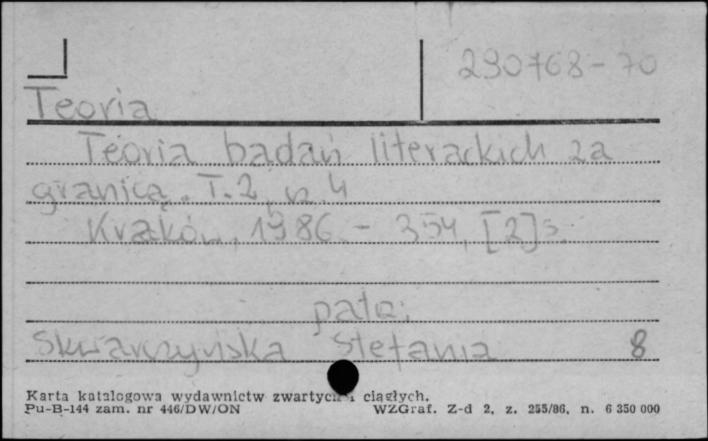 290768-70
Teoria
Teoria badań literackich za
granicą. T. 2, cz. 4
Kraków, 1986. - 354, [2] s.
patrz:
Skwarczyńska Stefania 8
Karta katalogowa wydawnictw zwartych i ciągłych.
Pu-B-144 zam. nr 446/DW/ON WZGraf. Z-d 2, z. 255/86, n. 6 350 000